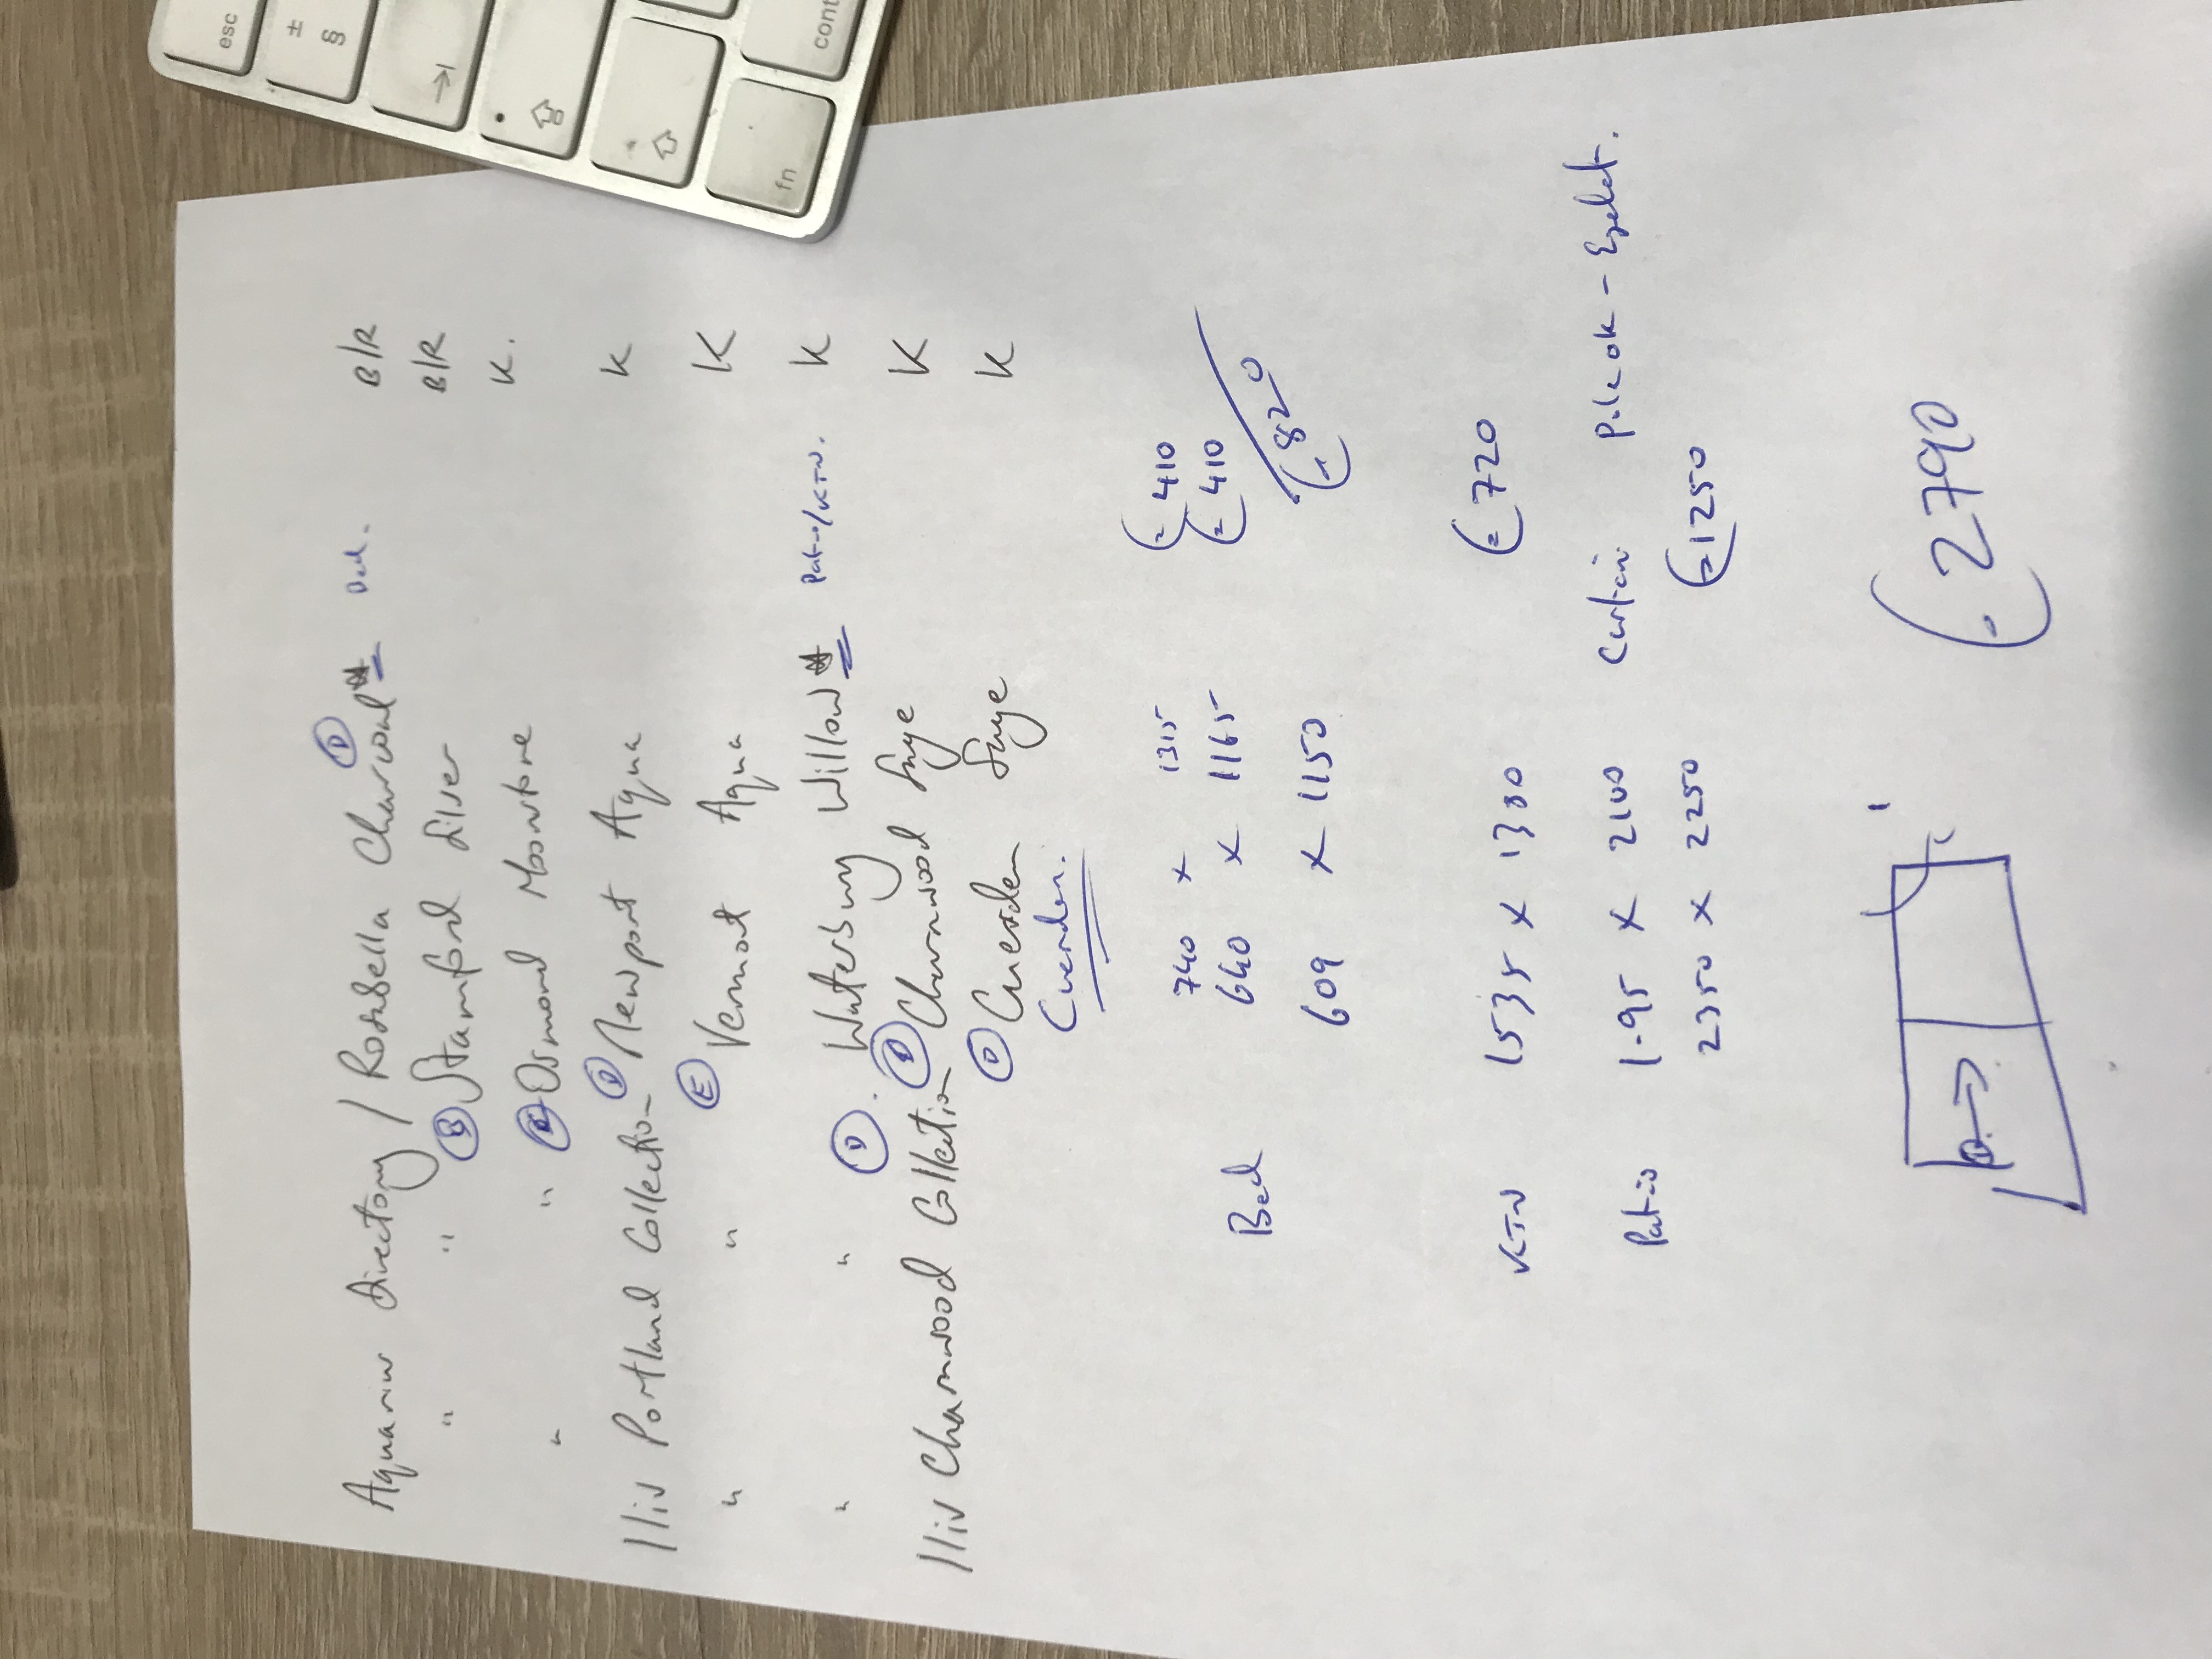 esc
±
§
fn
cont
Aquarius Directory / Rosabella Charcoal Ⓓ Bed. B/R
" " Ⓑ Stamford Silver B/R
" " Osmond Moonstone K.
Iliv Portland Collection Ⓓ Newport Aqua K
" " Ⓔ Vermont Aqua K
" " Ⓓ. Waterbury Willow Patio/KTN. K
Iliv Charnwood Collection Charnwood Sage K
Ⓓ Cuerden Sage K
Cuerden.
740 x 1315 410
Bed 640 x 1165 410
609 x 1150 820
KTN 1535 x 1300 720
Patio 1-95 x 2100 Curtain Pole ok - Eyelet.
2350 x 2250 1250
2790